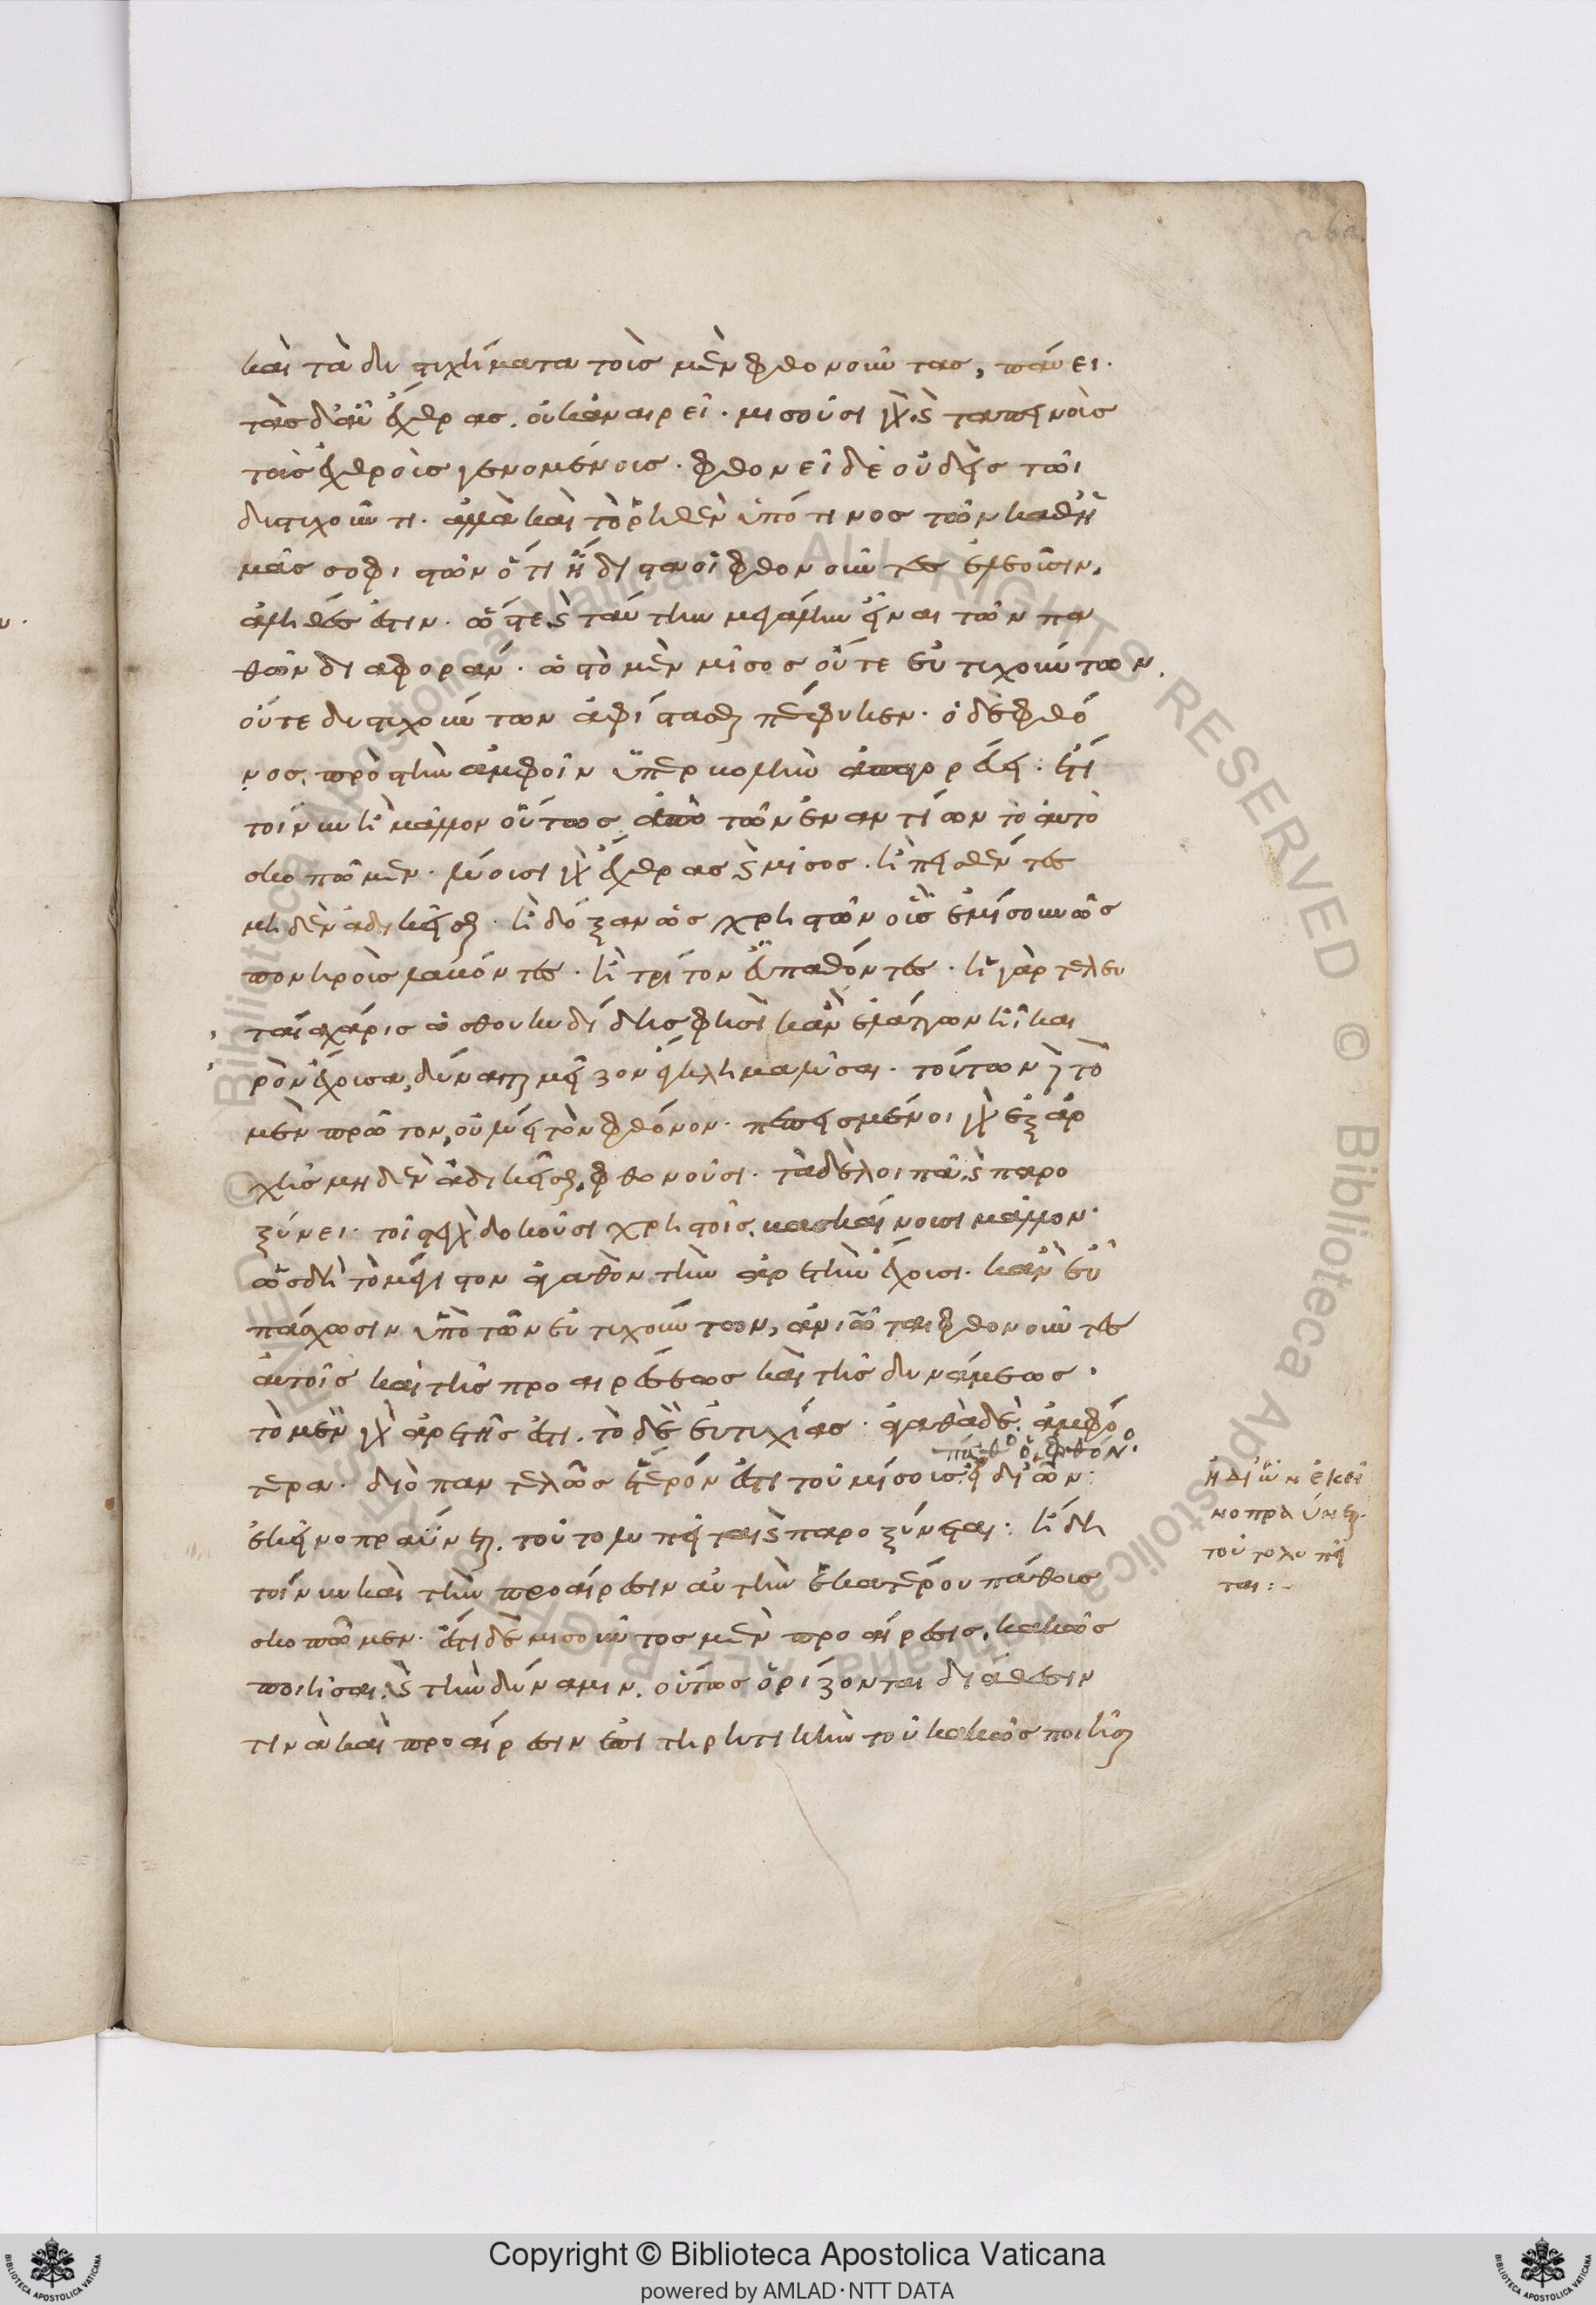 καὶ τὰ δυστυχήματα τοὺς μὲν φθονοῦντας, παύει.
τὰς δ' αὖ ἔχθρας. οὐκ ἀναιρεῖ. μισοῦσι γὰρ καὶ ταπεινοὺς
τοὺς ἐχθροὺς γενομένους. φθονεῖ δὲ οὐδεὶς τῶι
δυστυχοῦντι. ἀλλὰ καὶ τὸ ῥηθὲν ὑπό τινος τῶν καθ' ἡ
μᾶς σοφιστῶν ὅτι ἥδιστα οἱ φθονοῦντες ἐλεοῦσιν,
ἀληθές ἐστιν. ὥστε καὶ ταύτην μεγάλην εἶναι τῶν πα
θῶν διαφοράν. ὡς τὸ μὲν μῖσος οὔτε εὐτυχούντων
οὔτε δυστυχούντων ἀφίστασθαι πέφυκεν. ὁ δὲ φθό
νος. πρὸς τὴν ἀμφοῖν ὑπερβολὴν ἀπαγορεύει. ἔτι
τοίνυν ἢ μᾶλλον οὕτως ἀπὸ τῶν ἐναντίων τὸ αὐτὸ
σκοπῶμεν. λύουσι γὰρ ἔχθρας καὶ μῖσος. ἢ πεισθέντες
μηδὲν ἀδικεῖσθαι. ἢ δόξαν ὡς χρηστῶν οὓς ἐμίσουν ὡς
πονηροὺς λαβόντες. ἢ τρίτον εὖ παθόντες. ἡ γὰρ τελευ
ταία χάρις ὡς Θουκυδίδης φησὶ κἂν ἐλάττων ᾖ και
ρὸν ἔχουσα, δύναται μεῖζον ἔγκλημα λῦσαι. τούτων τὸ
μὲν πρῶτον, οὐ λύει τὸν φθόνον. πεπεισμένοι γὰρ ἐξ ἀρ
χῆς μηδὲν ἀδικεῖσθαι, φθονοῦσι. τὰ δὲ λοιπὰ, καὶ παρο
ξύνει. τοῖς τε γὰρ δοκοῦσι χρηστοῖς. βασκαίνουσι μᾶλλον.
ὡς δὴ τὸ μέγιστον ἀγαθὸν τὴν ἀρετὴν ἔχουσι. κἂν εὖ
πάσχωσιν ὑπὸ τῶν εὐτυχούντων, ἀνιῶνται φθονοῦντες
αὐτοῖς καὶ τῆς προαιρέσεως καὶ τῆς δυνάμεως.
τὸ μὲν γὰρ ἀρετῆς ἐστι. τὸ δὲ εὐτυχίας. ἀγαθὰ δὲ ἀμφό
τερα. διὸ παντελῶς ἕτερόν ἐστι τοῦ μίσους εἰ δι' ὧν
πάθος ὁ φθόνος
ἐκεῖνο πραΰνεται. τοῦτο λυπεῖται καὶ παροξύνεται. ἤδη
τοίνυν καὶ τὴν προαίρεσιν αὐτὴν ἑκατέρου πάθους
σκοπῶμεν. ἔστι δὲ μισοῦντος μὲν προαίρεσις. κακῶς
ποιῆσαι. καὶ τὴν δύναμιν. οὕτως ὁρίζονται διάθεσίν
τινα καὶ προαίρεσιν ἐπιτηρητικὴν τοῦ κακῶς ποιῆσαι
ἢ δι' ὧν ἐκεῖ
νο πραΰνεται.
τοῦτο λυπεῖ
ται:-
Copyright © Biblioteca Apostolica Vaticana
powered by AMLAD·NTT DATA